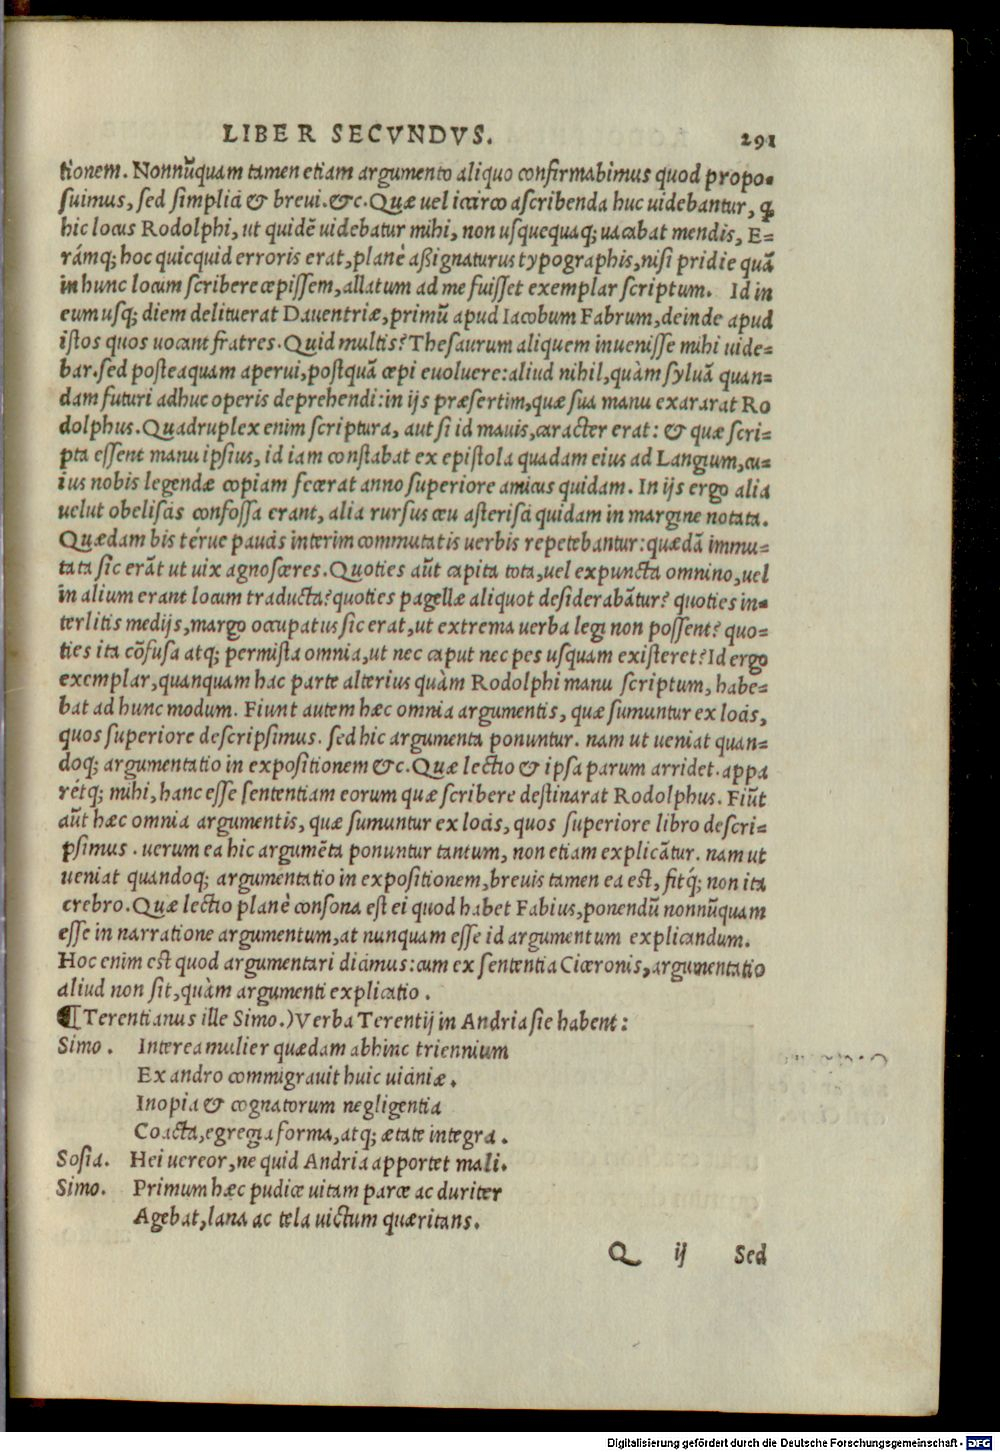 LIBER SECVNDVS. 291
tionem. Nonnũquam tamen etiam argumento aliquo confirmabimus quod propo-
ſuimus, ſed ſimplici & breui. &c. Quæ uel icirco aſcribenda huc uidebantur, ꝙ
hic locus Rodolphi, ut quidẽ uidebatur mihi, non uſquequaq; uacabat mendis, E-
rámq; hoc quicquid erroris erat, planè aßignaturus typographis, niſi pridie quã
in hunc locum ſcribere cœpiſſem, allatum ad me fuiſſet exemplar ſcriptum. Id in
eum uſq; diem delituerat Dauentriæ, primũ apud Iacobum Fabrum, deinde apud
iſtos quos uocant fratres. Quid multis? Theſaurum aliquem inueniſſe mihi uide-
bar. ſed poſteaquam aperui, poſtquã cœpi euoluere: aliud nihil, quàm ſyluã quan-
dam futuri adhuc operis deprehendi: in ijs præſertim, quæ ſua manu exararat Ro
dolphus. Quadruplex enim ſcriptura, aut ſi id mauis, caracter erat: & quæ ſcri-
pta eſſent manu ipſius, id iam conſtabat ex epiſtola quadam eius ad Langium, cu-
ius nobis legendæ copiam fecerat anno ſuperiore amicus quidam. In ijs ergo alia
uelut obeliſcis confoſſa erant, alia rurſus ceu aſteriſci quidam in margine notata.
Quædam bis térue paucis interim commutatis uerbis repetebantur: quædã immu-
tata ſic erãt ut uix agnoſceres. Quoties aũt capita tota, uel expuncta omnino, uel
in alium erant locum traducta? quoties pagellæ aliquot deſiderabãtur? quoties in-
terlitis medijs, margo occupatus ſic erat, ut extrema uerba legi non poſſent? quo-
ties ita cõfuſa atq; permiſta omnia, ut nec caput nec pes uſquam exiſteret? Id ergo
exemplar, quanquam hac parte alterius quàm Rodolphi manu ſcriptum, habe-
bat ad hunc modum. Fiunt autem hæc omnia argumentis, quæ ſumuntur ex locis,
quos ſuperiore deſcripſimus. ſed hic argumenta ponuntur. nam ut ueniat quan-
doq; argumentatio in expoſitionem &c. Quæ lectio & ipſa parum arridet. appa
rétq; mihi, hanc eſſe ſententiam eorum quæ ſcribere deſtinarat Rodolphus. Fiũt
aũt hæc omnia argumentis, quæ ſumuntur ex locis, quos ſuperiore libro deſcri-
pſimus. uerum ea hic argumẽta ponuntur tantum, non etiam explicãtur. nam ut
ueniat quandoq; argumentatio in expoſitionem, breuis tamen ea eſt, fitq́; non ita
crebro. Quæ lectio planè conſona eſt ei quod habet Fabius, ponendũ nonnũquam
eſſe in narratione argumentum, at nunquam eſſe id argumentum explicandum.
Hoc enim eſt quod argumentari dicimus: cum ex ſententia Ciceronis, argumentatio
aliud non ſit, quàm argumenti explicatio.
¶ Terentianus ille Simo.) Verba Terentij in Andria ſie habent:
Simo. Interea mulier quædam abhinc triennium
Ex andro commigrauit huic uiciniæ.
Inopia & cognatorum negligentia
Coacta, egregia forma, atq; ætate integra.
Soſia. Hei uereor, ne quid Andria apportet mali.
Simo. Primum hæc pudice uitam parce ac duriter
Agebat, lana ac tela uictum quæritans.
Q ij Sed
Digitalisierung gefördert durch die Deutsche Forschungsgemeinschaft - DFG